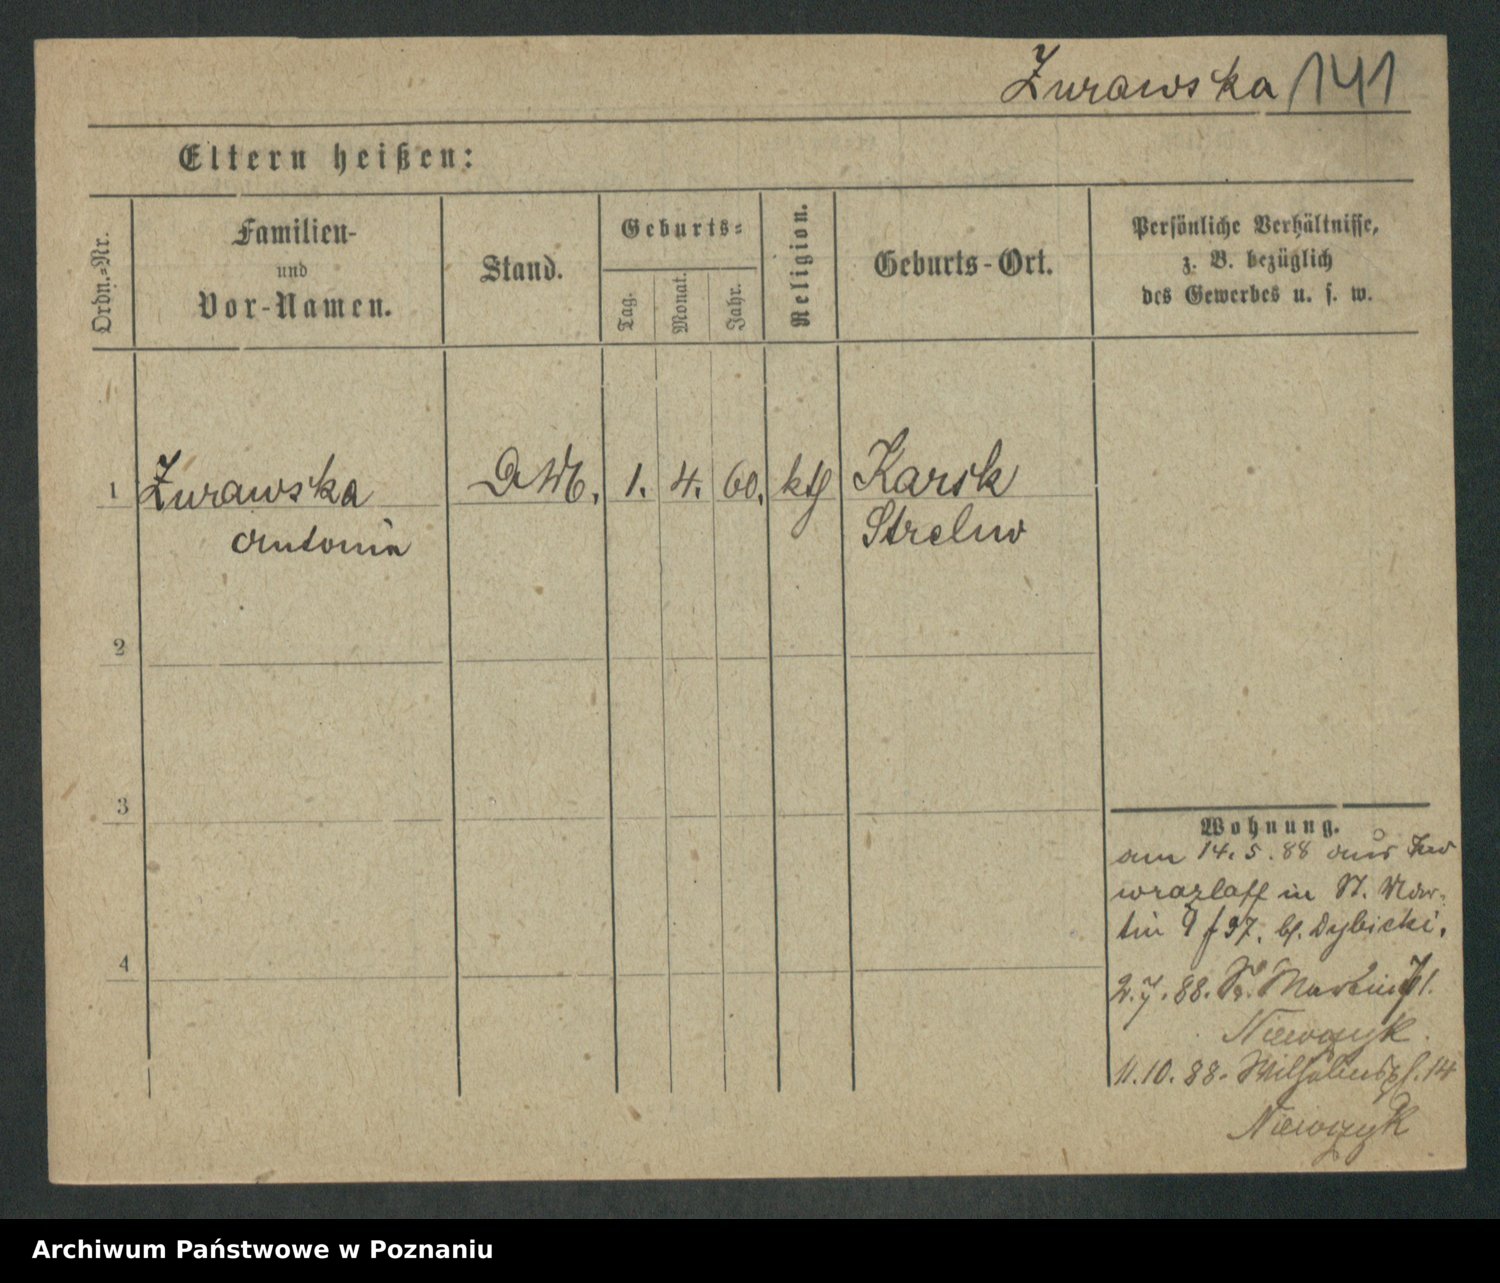 Żurawska 141
Eltern heißen:
Ordn.-Nr.
Familien-
und
Vor-Namen.
Stand.
Geburts-
Tag.
Monat.
Jahr.
Religion.
Geburts-Ort.
Persönliche Verhältnisse,
z. B. bezüglich
des Gewerbes u. s. w.
1 Żurawska D.M. 1. 4. 60. kth Karsk
Antonia Strelno
2
3
4
Wohnung.
am 14. 5. 88 aus Ino
wrazlaff in St. Mar-
tin 37. bei Dybicki.
2. 7. 88. St. Martin 71.
Niewczyk.
11. 10. 88. Wilhelmspl. 14
Niewczyk
Archiwum Państwowe w Poznaniu